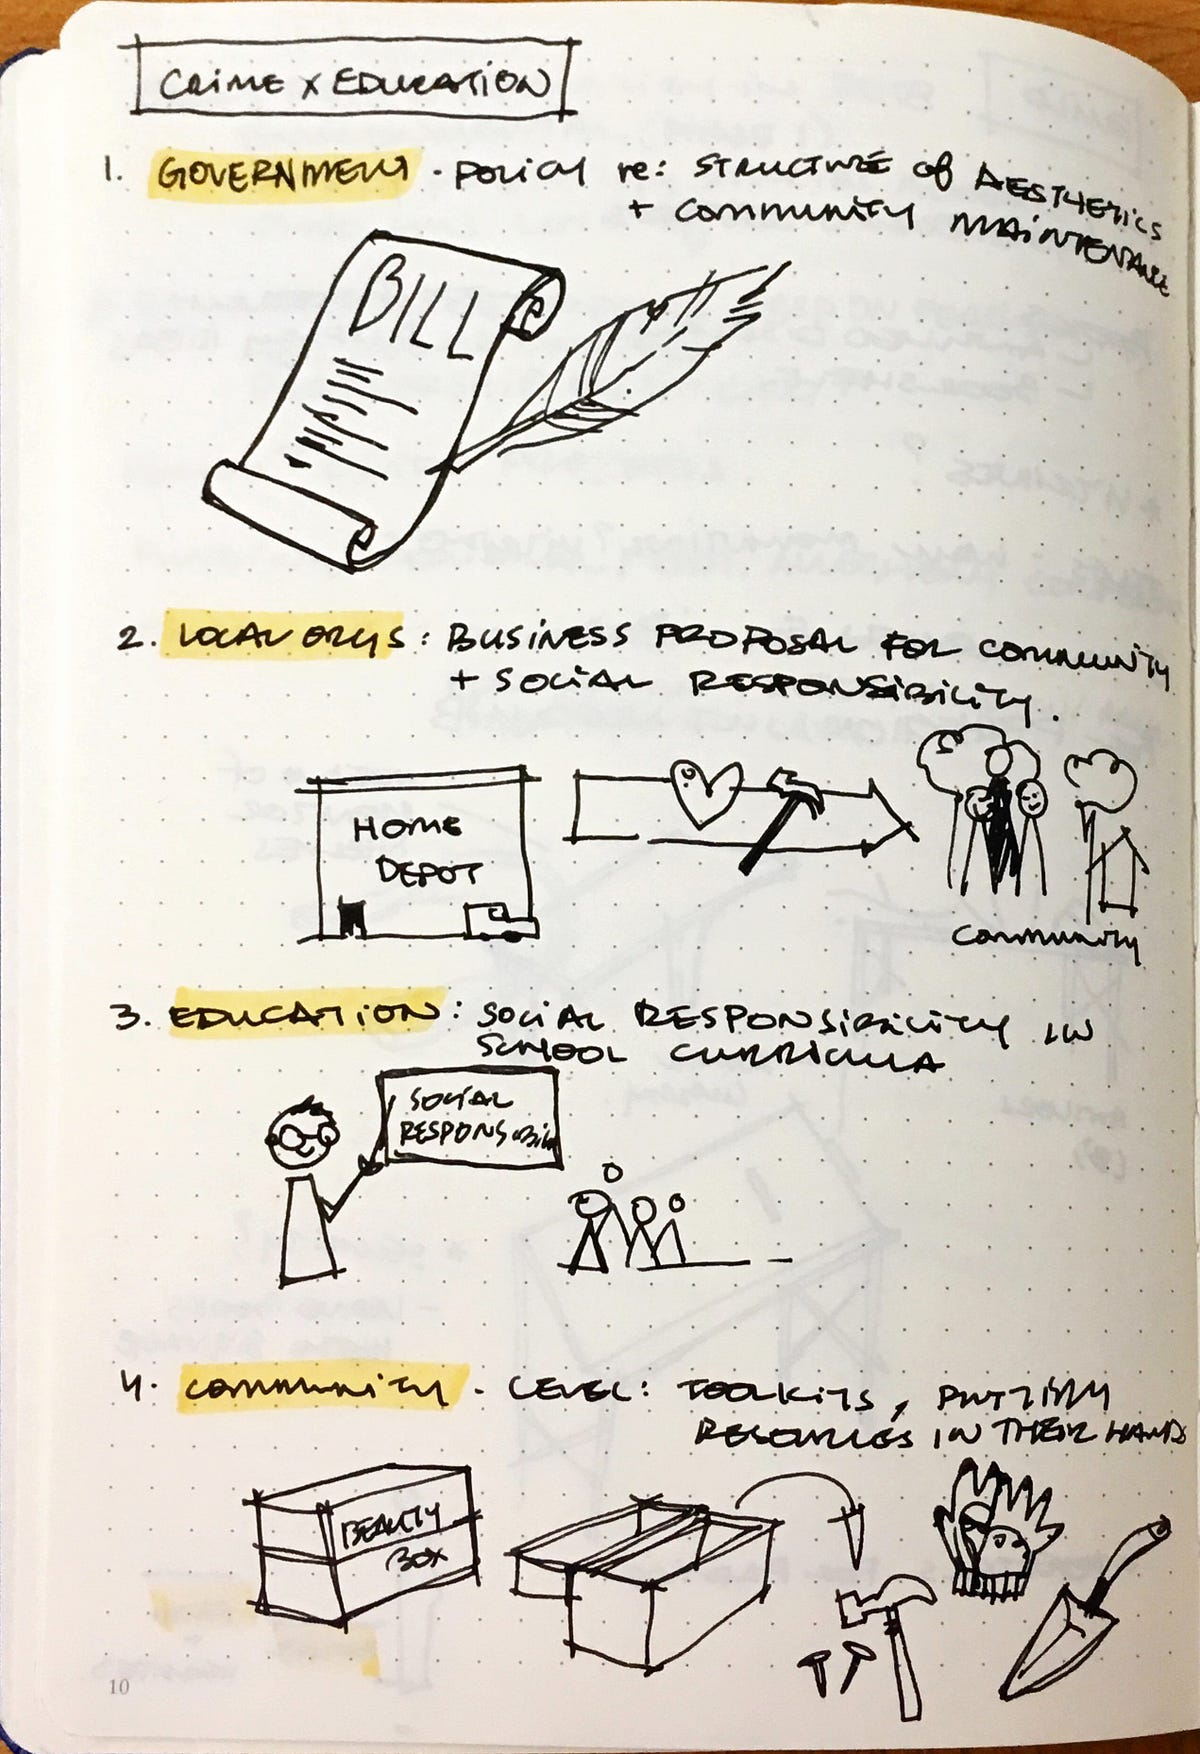 CRIME x EDUCATION
1. GOVERNMENT - POLICY re: STRUCTURE of AESTHETICS
+ COMMUNITY MAINTENANCE
BILL
2. LOCAL ORGS: BUSINESS PROPOSAL FOR COMMUNITY
+ SOCIAL RESPONSIBILITY.
HOME
DEPOT
COMMUNITY
3. EDUCATION: SOCIAL RESPONSIBILITY IN
SCHOOL CURRICULA
SOCIAL
RESPONSIBIL
4. COMMUNITY - LEVEL: TOOLKITS, PUTTING
RESOURCES IN THEIR HANDS
BEAUTY
BOX
10